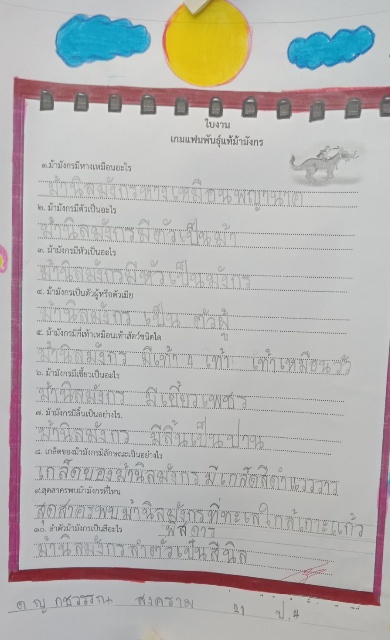 ใบงาน
เกมแฟนพันธุ์แท้ม้ามังกร
๑.ม้ามังกรมีหางเหมือนอะไร
ม้านิลมังกรหางเหมือนพญานาค
๒. ม้ามังกรมีตัวเป็นอะไร
ม้านิลมังกรมีตัวเป็นม้า
๓. ม้ามังกรมีหัวเป็นอะไร
ม้านิลมังกรมีหัวเป็นมังกร
๔. ม้ามังกรเป็นตัวผู้หรือตัวเมีย
ม้านิลมังกร เป็น ตัวผู้
๕. ม้ามังกรมีกี่เท้าเหมือนเท้าสัตว์ชนิดใด
ม้านิลมังกร มีเท้า ๔ เท้า เท้าเหมือนวัว
๖. ม้ามังกรมีเขี้ยวเป็นอะไร
ม้านิลมังกร มีเขี้ยวเพชร
๗. ม้ามังกรมีลิ้นเป็นอย่างไร
ม้านิลมังกร มีลิ้นเป็นปาน
๘. เกล็ดของม้ามังกรมีลักษณะเป็นอย่างไร
เกล็ดของม้านิลมังกร มีเกล็ดสีดำแวววาว
๙.สุดสาครพบม้ามังกรที่ไหน
สุดสาครพบม้านิลมังกรที่ทะเลใกล้เกาะแก้ว
พิสดาร
๑๐. ลำตัวม้ามังกรเป็นสีอะไร
ม้านิลมังกรลำตัวเป็นสีนิล
ด.ญ กชวรรณ สงคราม 21 ป.4